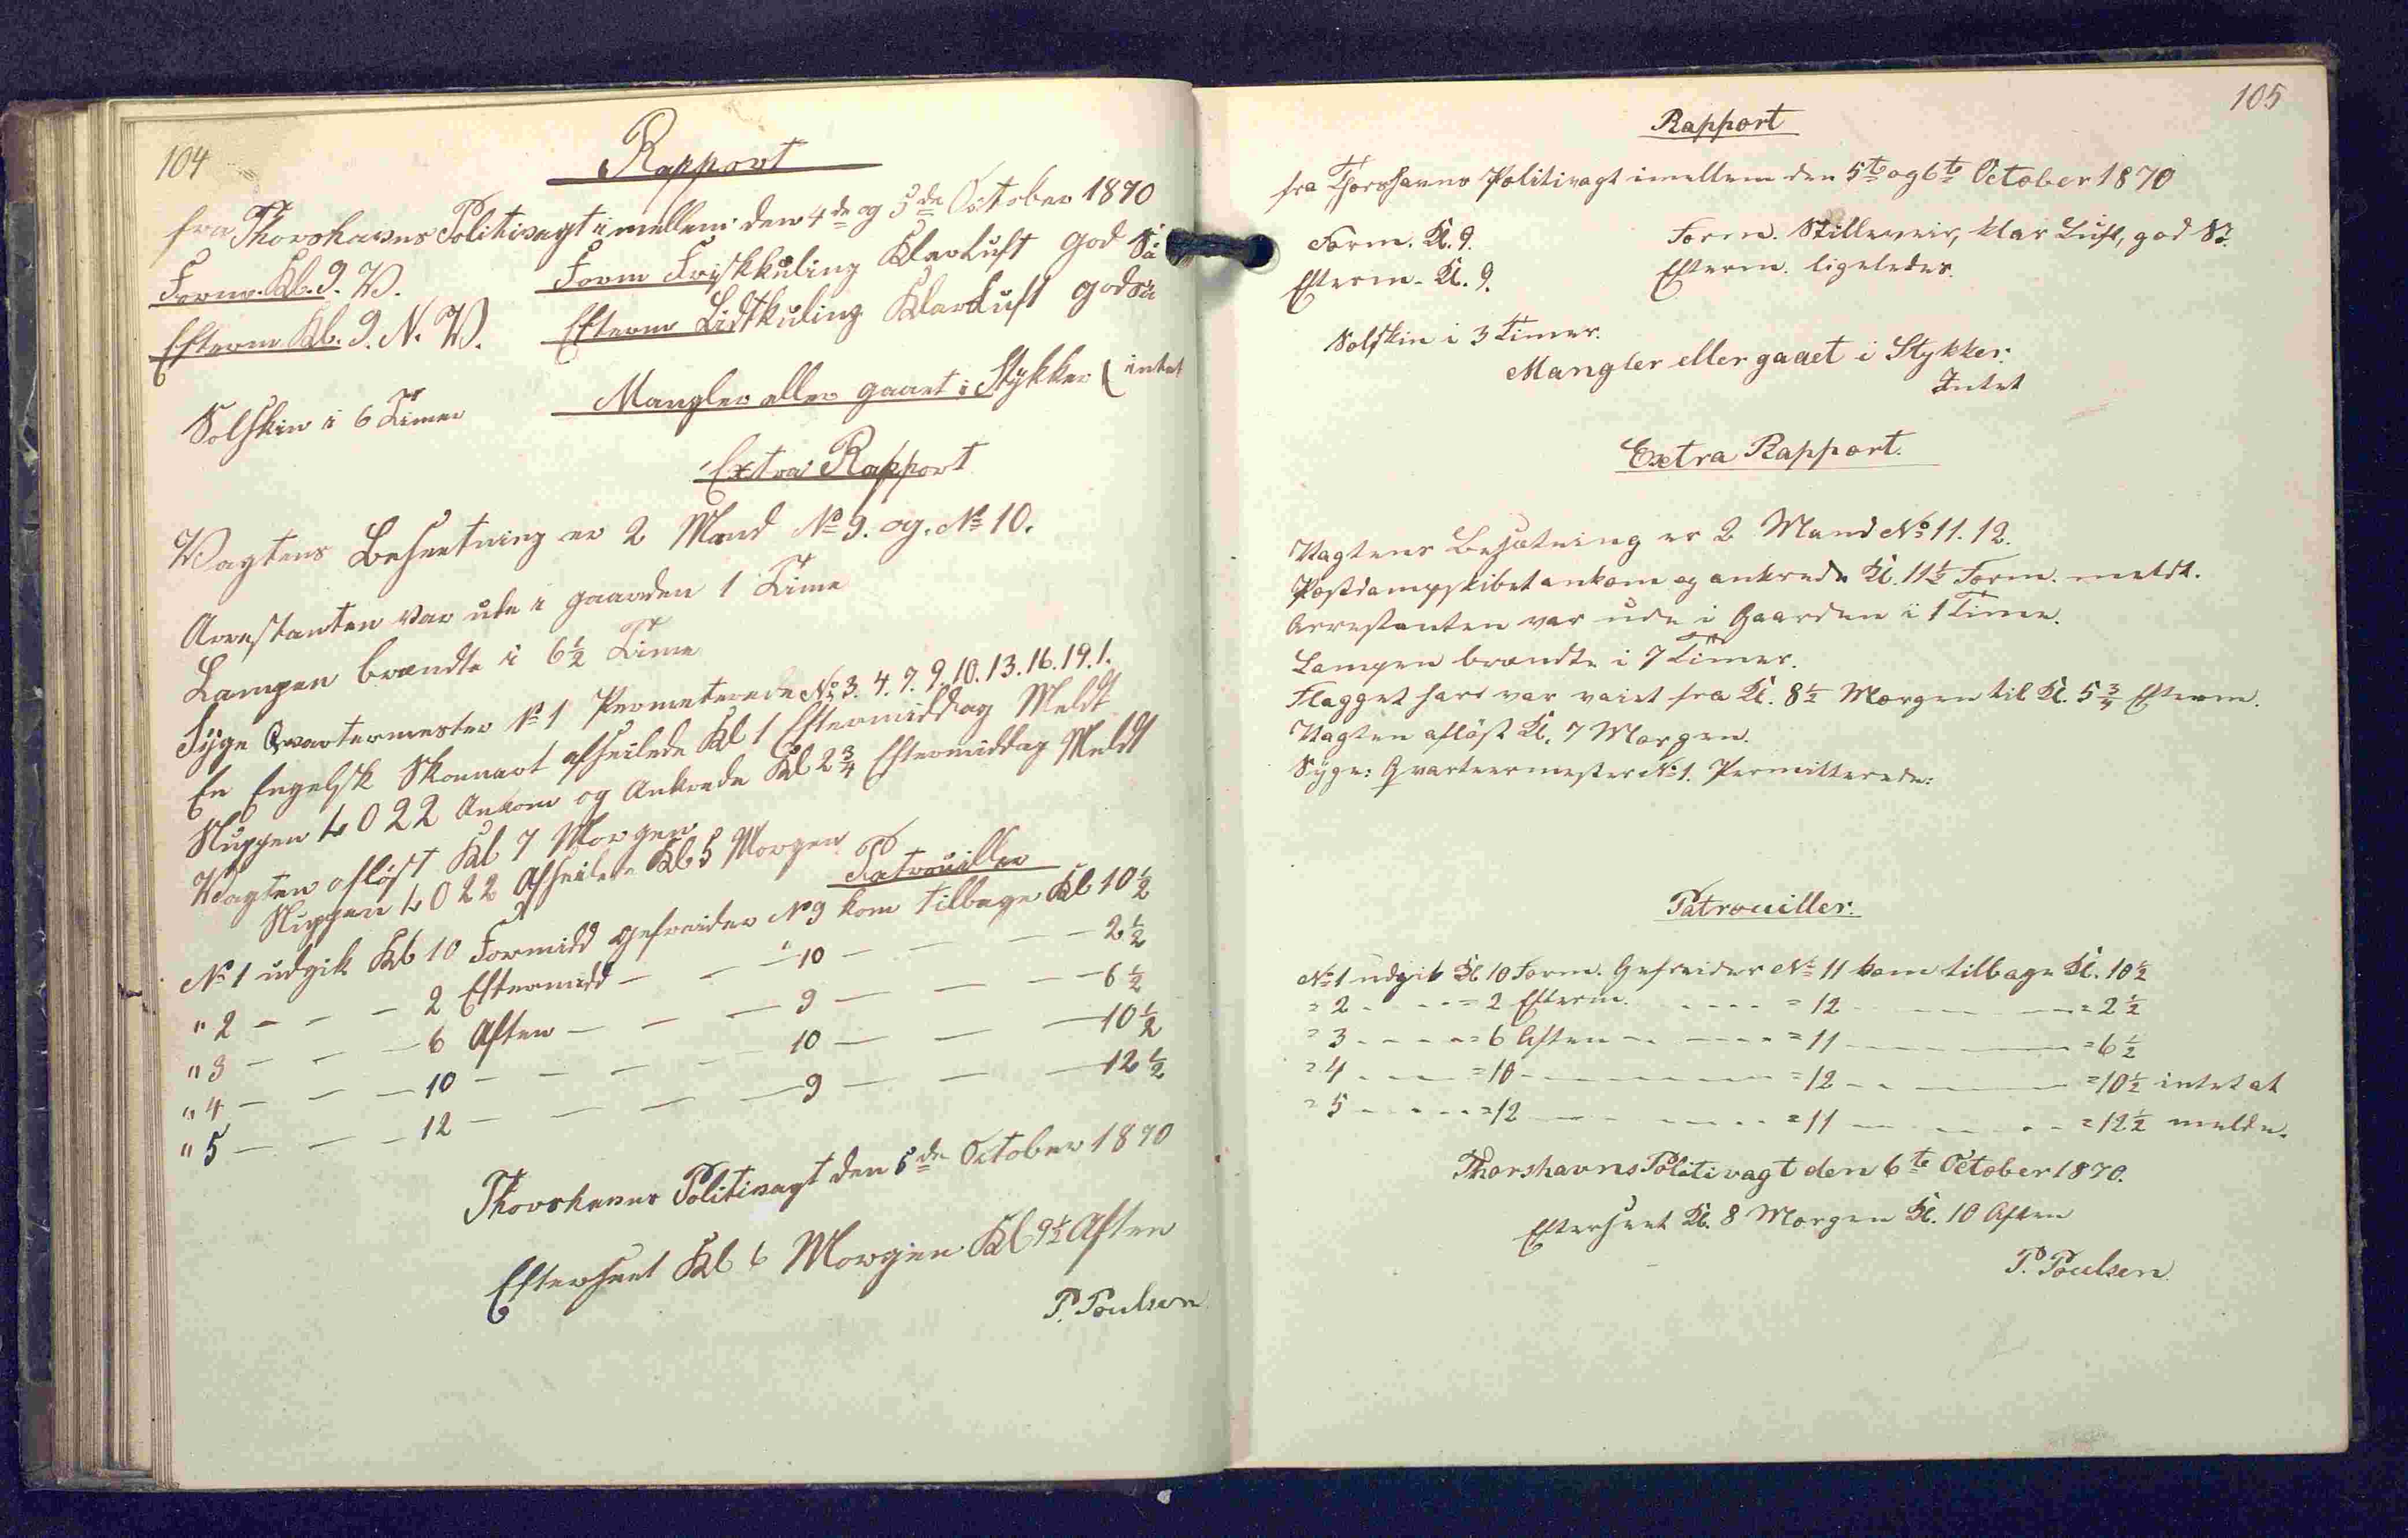 104
Rapport
fra Thorshavns Politivagt imellem den 4de og 5de October 1870
Form. Kl. 9. V. Form Friskkuling Klarluft god Sö
Efterm Kl. 9. N. V. Efterm Lidtkuling Klarluft god Sö
Solskin i 6 Timer Mangler eller gaaet i Stykker (intet
Extra Rapport
Vagtens Besætning er 2 Mand No 9. og. No 10.
Arrestanten var ude i gaarden 1 Time
Lampen brændte i 6½ Time
Syge Qvartermester No 1 Permeterede No 3. 4. 7. 9. 10. 13. 16. 19. 1.
En Engelsk Skonnart afseilede Kl 1 Eftermiddag Meldt
Sluppen 022 Ankom og Ankrede Kl 2¾ Eftermiddag Meldt
Vagten afløst Kl 7 Morgen
Sluppen 022 Afseilede Kl 5 Morgen
Patrouiller
No 1 udgik Kl 10 Formidd gefreider No 9 kom tilbage Kl 10½
" 2 — — — 2 Eftermidd — — — 10 — — — 2½
" 3 — — — 6 Aften — — — 9 — — — 6½
" 4 — — — 10 — — — — 10 — — — 10½
" 5 — — — 12 — — — — 9 — — — 12½
Thorshavns Politivagt den 5de October 1870
Efterseet Kl 6 Morgen Kl 9½ Aften
P. Poulsen
105
Rapport
fra Thorshavns Politivagt imellem den 5te og 6te October 1870
Form. Kl. 9. Form. Stilleveir, klar Luft, god Sö.
Efterm. Kl. 9. Efterm. ligeledes.
Solskin i 3 Timer.
Mangler eller gaaet i Stykker.
Intet
Extra Rapport.
Vagtens Besætning er 2 Mand No 11. 12.
Postdampskibet ankom og ankrede Kl. 11½ Form. meldt.
Arrestanten var ude i Gaarden i 1 Time.
Lampen brændte i 7 Timer.
Flagget her var vaiet fra Kl. 8½ Morgen til Kl. 5¾ Efterm.
Vagten afløst Kl. 7 Morgen.
Syge: Qvarteermester No 1. Permitterede:
Patrouiller.
No 1 udgik Kl 10 Form. Gefreider No 11 kom tilbage Kl. 10½
= 2 - - - = 2 Efterm. - - - = 12 - - - = 2½
= 3 - - - = 6 Aften - - - = 11 - - - = 6½
= 4 - - - = 10 - - - = 12 - - - = 10½ intet at
= 5 - - - = 12 - - - = 11 - - - = 12½ melde.
Thorshavns Politivagt den 6te October 1870.
Efterseet Kl. 8 Morgen Kl. 10 Aften
P. Poulsen